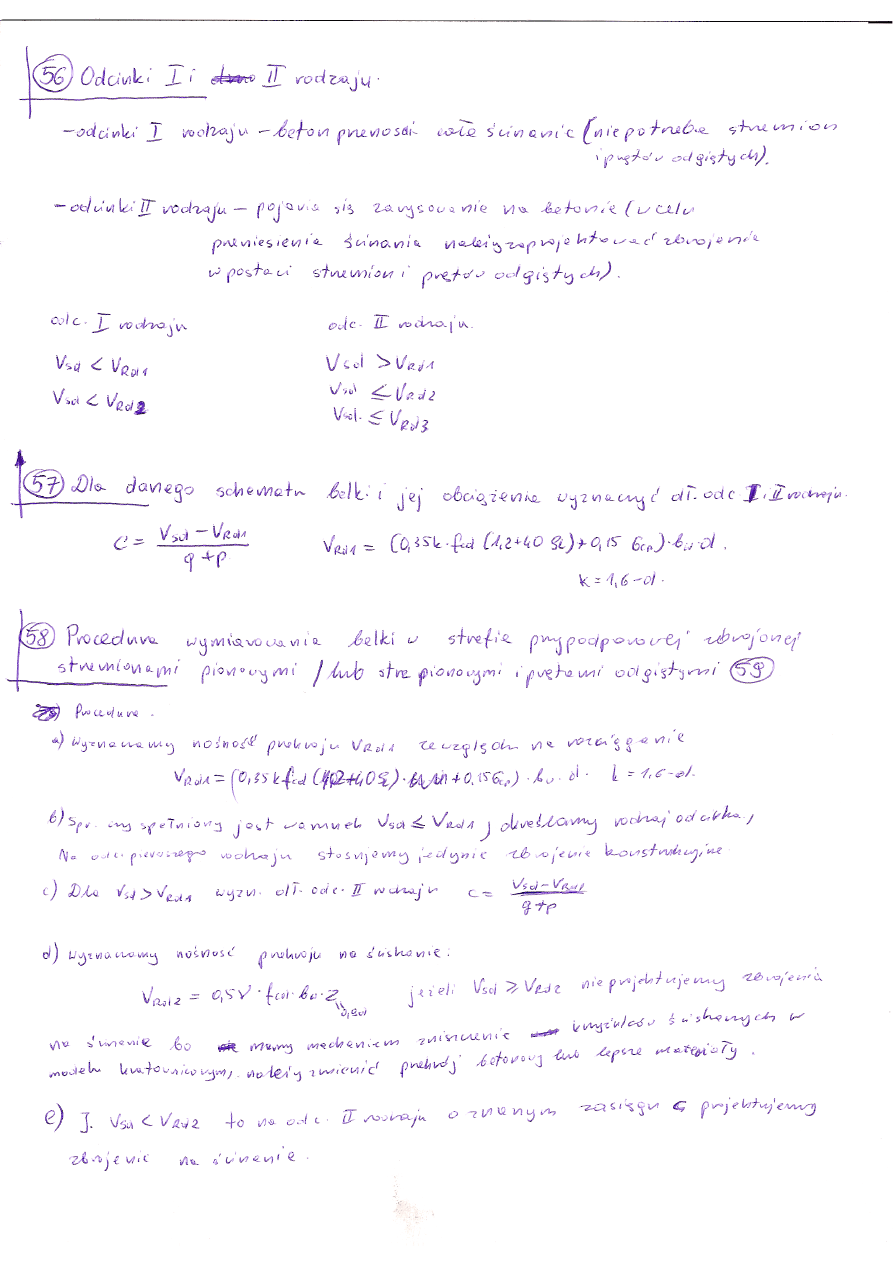 56 Odcinki I i II rodzaju.
- odcinki I rodzaju - beton przenosi całe ścinanie (niepotrzeba strzemion
i prętów odgiętych).
- odcinki II rodzaju - pojawia się zarysowanie na betonie (w celu
przeniesienia ścinania należy zaprojektować zbrojenie
w postaci strzemion i prętów odgiętych).
odc. I rodzaju odc. II rodzaju.
Vsd < VRd1 Vsd > VRd1
Vsd < VRd2 Vsd ≤ VRd2
Vsd. ≤ VRd3
57 Dla danego schematu belki i jej obciążenia wyznaczyć dł. odc. I i II rodzaju.
C = (Vsd - VRd1)/(q+p) VRd1 = (0,35k·fcd (1,2+40 ϱL)+0,15 σcp)·bw·d.
k=1,6-d.
58 Procedura wymiarowania belki w strefie przypodporowej zbrojonej
strzemionami pionowymi / lub strz pionowymi i prętami odgiętymi 59
Procedura.
a) Wyznaczamy nośność przekroju VRd1 ze względu na rozciąganie
VRd1 = (0,35k fcd (1,2+40ϱL) +0,15σcp)·bw·d. k=1,6-d.
b) Spr. czy spełniony jest warunek Vsd ≤ VRd1, określamy rodzaj odcinka,
Na odc. pierwszego rodzaju stosujemy jedynie zbrojenie konstrukcyjne.
c) Dla Vsd > VRd1 wyzn. dł. odc. II rodzaju c = (Vsd-VRd1)/(q+p)
d) Wyznaczamy nośność przekroju na ściskanie:
VRd2 = 0,5V·fcd·bw·z jeżeli Vsd ≥ VRd2 nie projektujemy zbrojenia
0,9d
na ścinanie bo mamy mechanizm zniszczenia krzyżulców ściskanych w
modelu kratownicowym, należy zmienić przekrój betonowy lub lepsze materiały.
e) J. Vsd < VRd2 to na odc. II rodzaju o znanym zasięgu c projektujemy
zbrojenie na ścinanie.